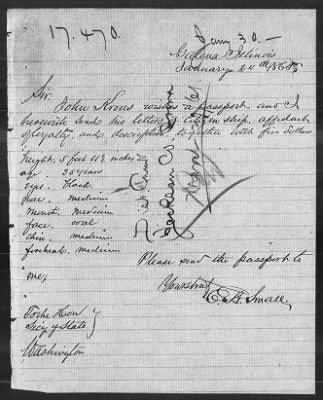 17.470.
Jan 30.-
Galena Illinois
January 24th 1865
Sir
John Krous wishes a passport and I
herewith send his letters of citizenship, affidavit
of loyalty, and description together with five dollars
Height. 5 feet 11½ inches
age. 35 years
eyes. black
nose. medium
mouth. medium
face. oval
chin. medium
forehead. medium
Please send the passport to
me,
Yours truly
E. A. Small.
To the Hon
Secy of State
Washington